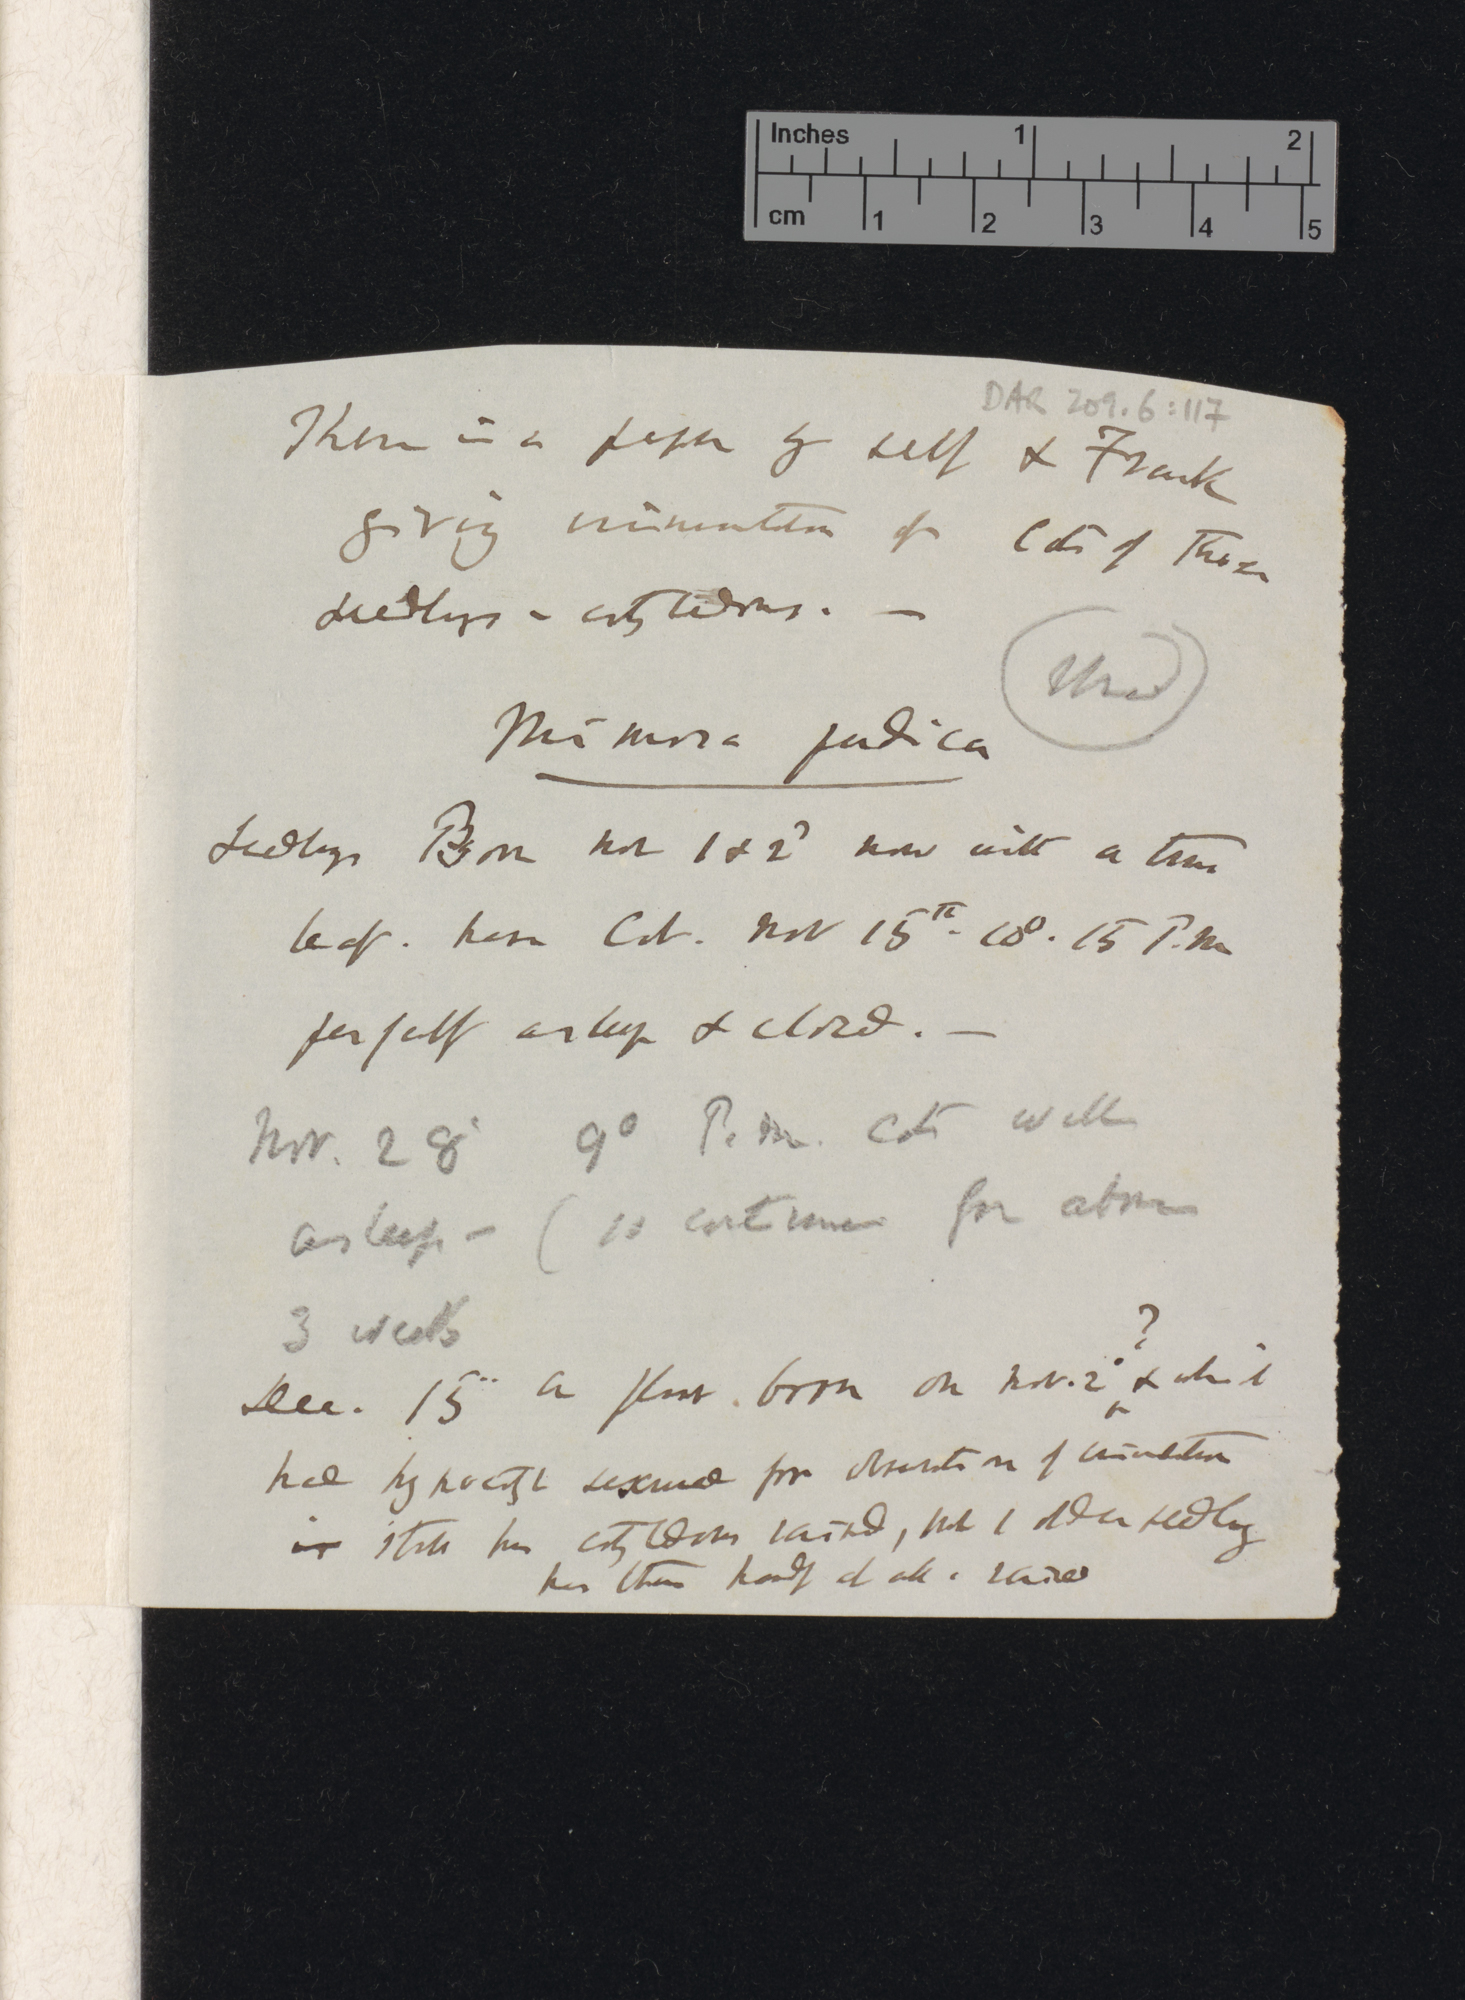 Inches 1 2
cm 1 2 3 4 5
DAR 209.6:117
There is a paper by self & Frank
giving of Cots of these
seedlings – cotyledons. —
Used
Mimosa pudica
Seedlings Born Nov 1 & 2? now with a true
leaf. have Cot. Nov 15th. 10°. 15 P.m
perfectly asleep & closed. —
Nov. 28' 9° P.m. Cots well
asleep – ( so continues for above
3 weeks
Dec. 15" a plant born on Nov. 2° ? & which
had hypocotyl secured for observation of circumnutation
in still has cotyledons raised, but 1 older seedling
has them hardly at all raised